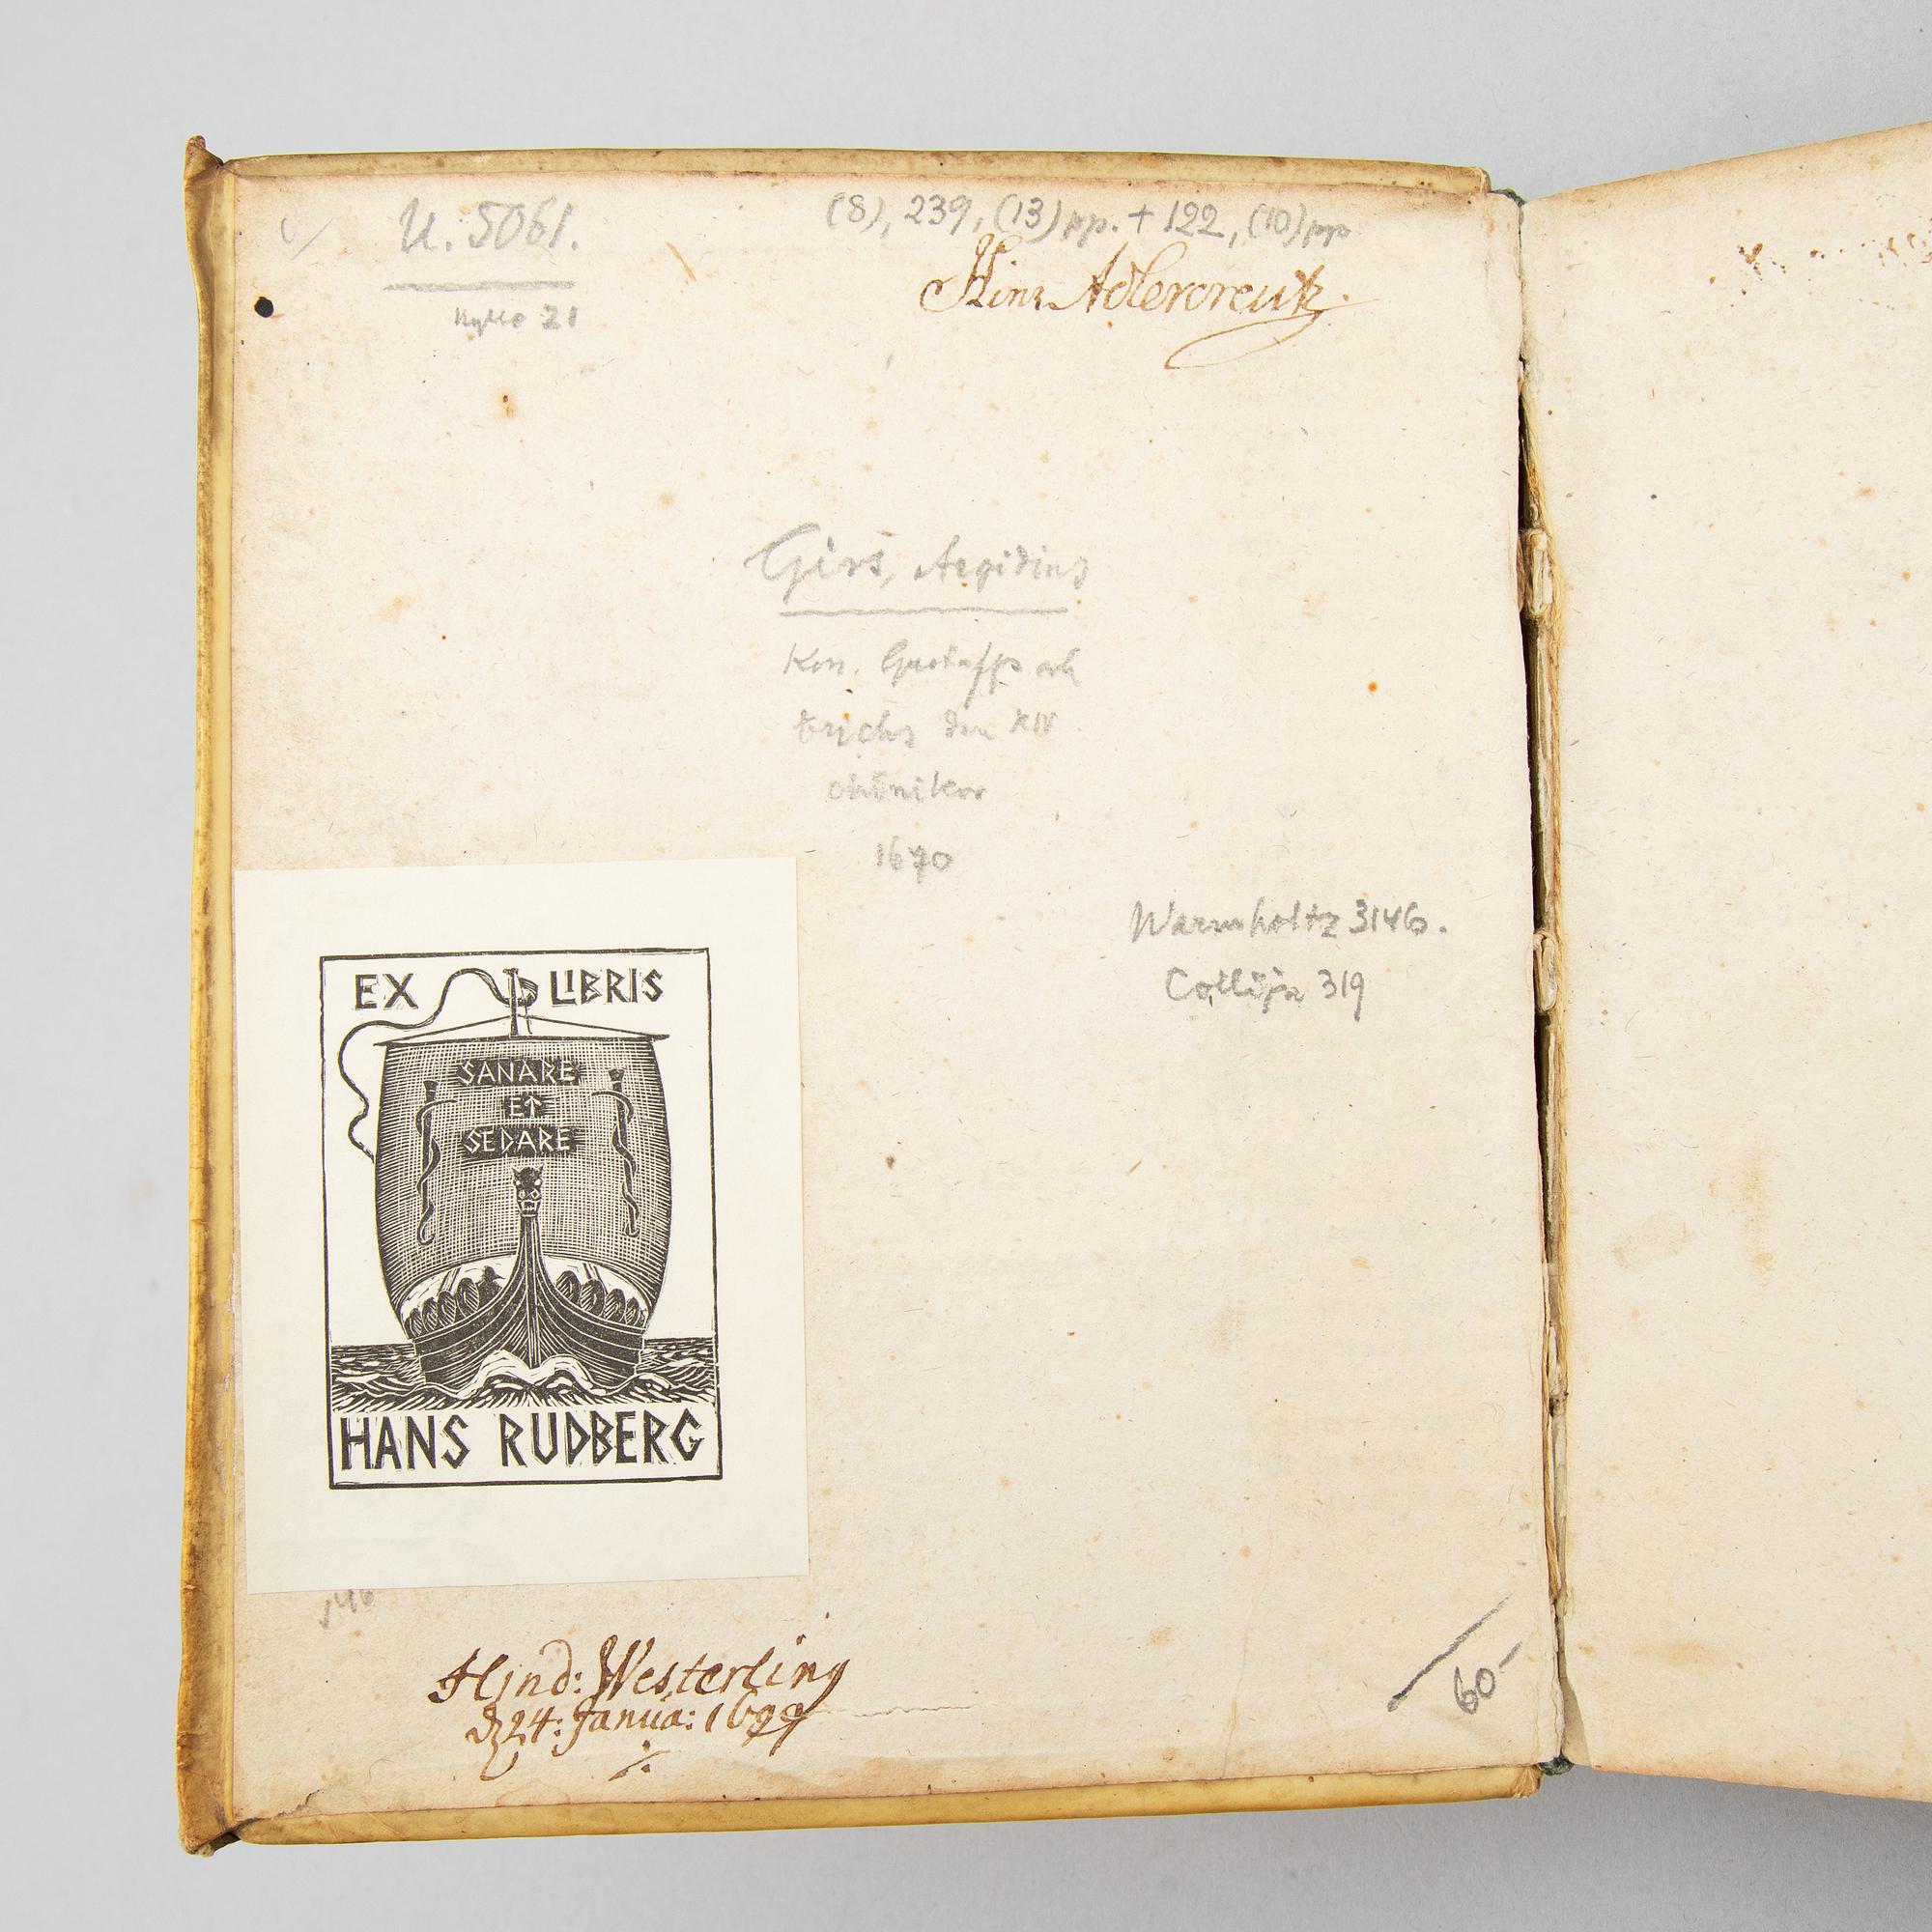 U. 5061.
(8), 239, (13) pp. + 122, (10) pp
Hinr Adlercreutz.
21
Girs, Aegidius
Kon. Gustaffs och
Erichs den XIV
chrönikor
1670
Warmholtz 3146.
Collijn 319
EX LIBRIS
SANARE
ET
SEDARE
HANS RUDBERG
Hind: Westerling
24: Janua: 1699
60-